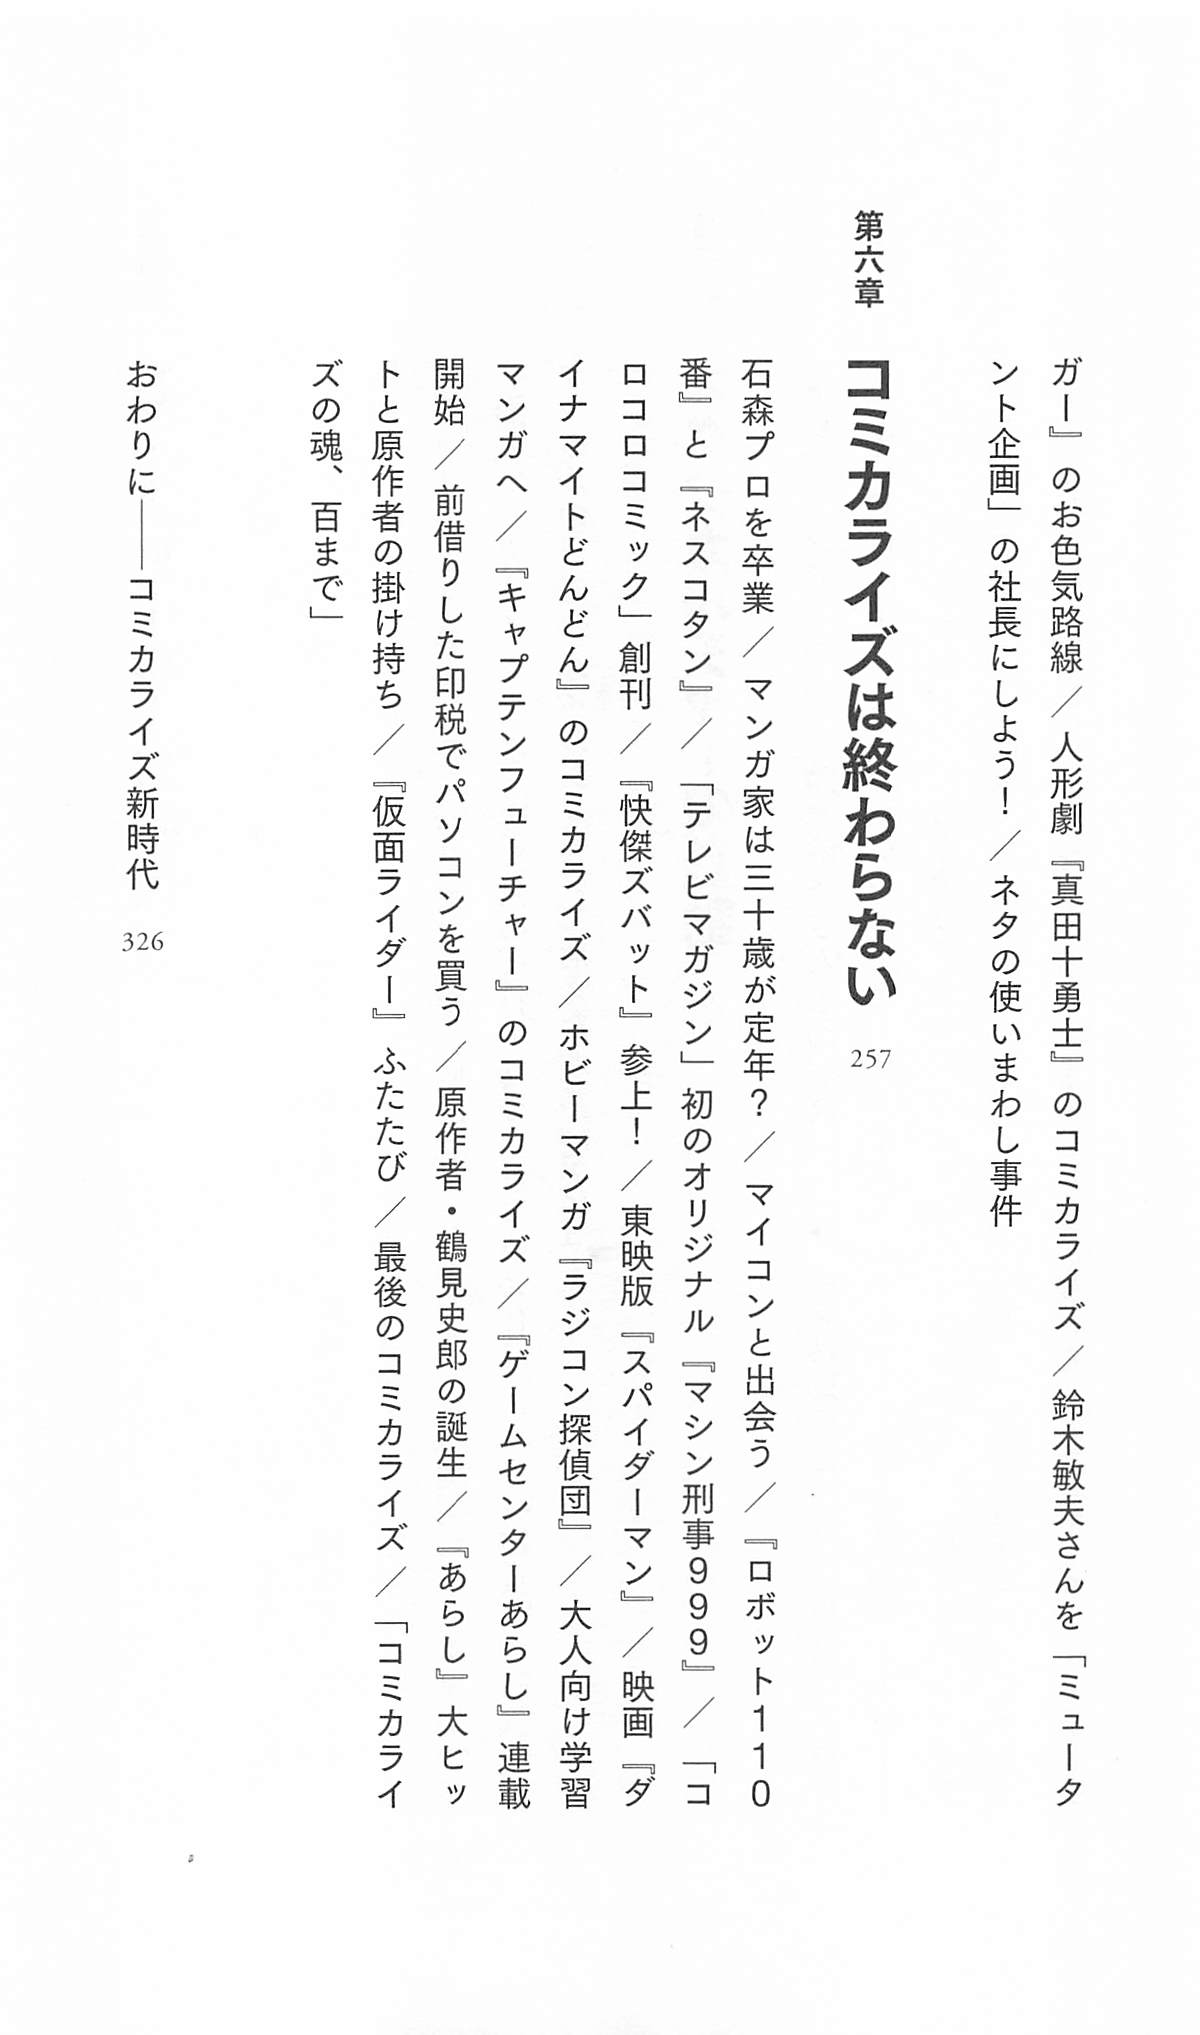 ガー』のお色気路線／人形劇『真田十勇士』のコミカライズ／鈴木敏夫さんを「ミュータ
ント企画」の社長にしよう！／ネタの使いまわし事件
第六章 コミカライズは終わらない 257
石森プロを卒業／マンガ家は三十歳が定年？／マイコンと出会う／『ロボット１１０
番』と『ネスコタン』／「テレビマガジン」初のオリジナル『マシン刑事９９９』／「コ
ロコロコミック」創刊／『快傑ズバット』参上！／東映版『スパイダーマン』／映画『ダ
イナマイトどんどん』のコミカライズ／ホビーマンガ『ラジコン探偵団』／大人向け学習
マンガへ／『キャプテンフューチャー』のコミカライズ／『ゲームセンターあらし』連載
開始／前借りした印税でパソコンを買う／原作者・鶴見史郎の誕生／『あらし』大ヒッ
トと原作者の掛け持ち／『仮面ライダー』ふたたび／最後のコミカライズ／「コミカライ
ズの魂、百まで」
おわりに──コミカライズ新時代 326